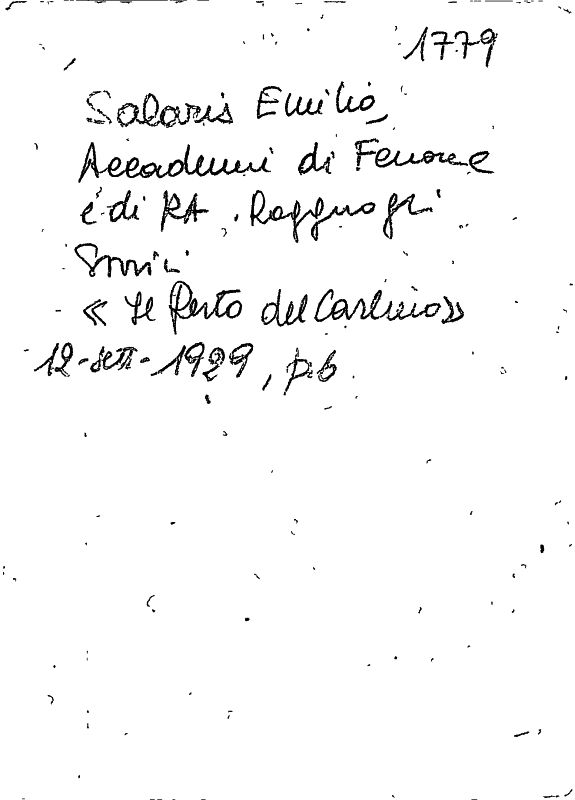 1779
Salaris Emilio,
Accademi di Ferrara
e di RA. Ragguagli
Storici
« Il Resto del Carlino»
12-sett-1929, p.6